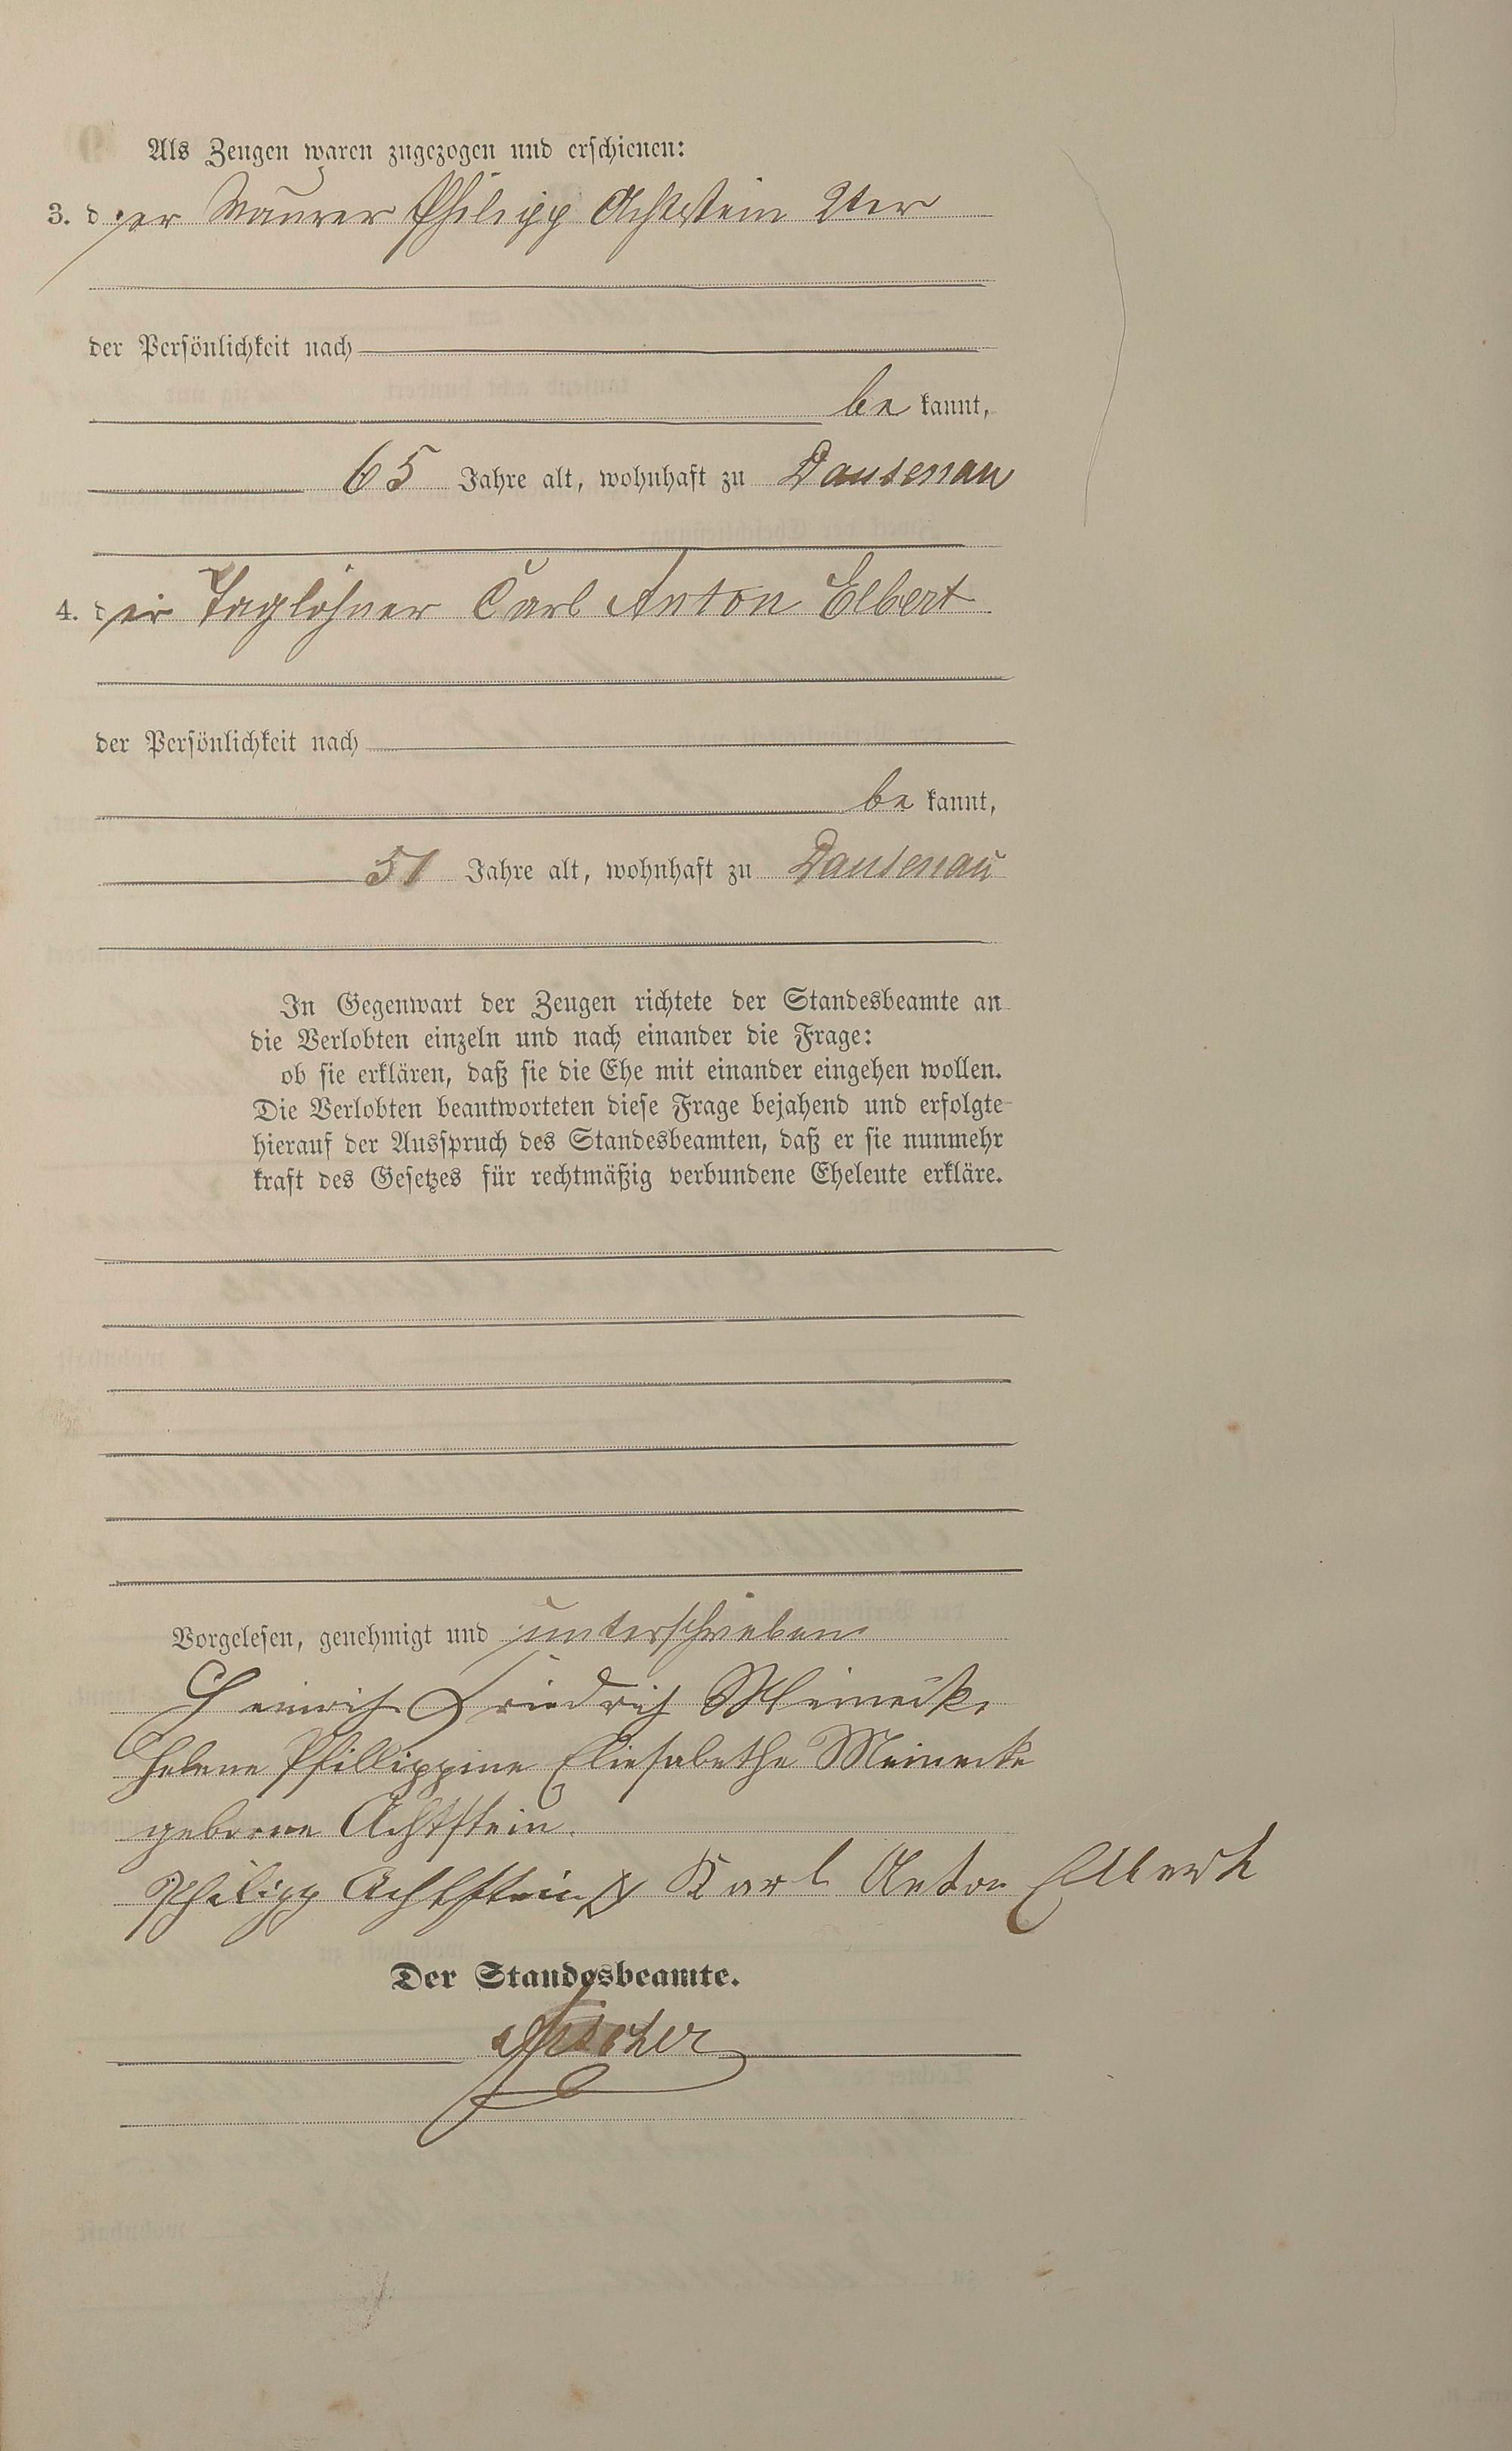 Als Zeugen waren zugezogen und erschienen:
3. der Maurer Philipp Achtstein 2ter
der Persönlichkeit nach
be kannt,
65 Jahre alt, wohnhaft zu Dausenau
4. der Taglöhner Carl Anton Elbert
der Persönlichkeit nach
be kannt,
51 Jahre alt, wohnhaft zu Dausenau
In Gegenwart der Zeugen richtete der Standesbeamte an
die Verlobten einzeln und nach einander die Frage:
ob sie erklären, daß sie die Ehe mit einander eingehen wollen.
Die Verlobten beantworteten diese Frage bejahend und erfolgte
hierauf der Ausspruch des Standesbeamten, daß er sie nunmehr
kraft des Gesetzes für rechtmäßig verbundene Eheleute erkläre.
Vorgelesen, genehmigt und unterschrieben
Heinrich Friedrich Meinecke
Helene Phillippine Eliesabethe Meinecke
geborene Achtstein.
Philipp Achtstein Karl Anton Elbert
Der Standesbeamte.
Fischer